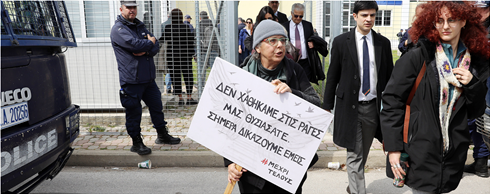 ΔΕΝ ΧΑΘΗΚΑΜΕ ΣΤΙΣ ΡΑΓΕΣ
ΜΑΣ ΘΥΣΙΑΣΑΤΕ
ΣΗΜΕΡΑ ΔΙΚΑΖΟΥΜΕ ΕΜΕΙΣ
#ΜΕΧΡΙ
ΤΕΛΟΥΣ
IVECO
POLICE